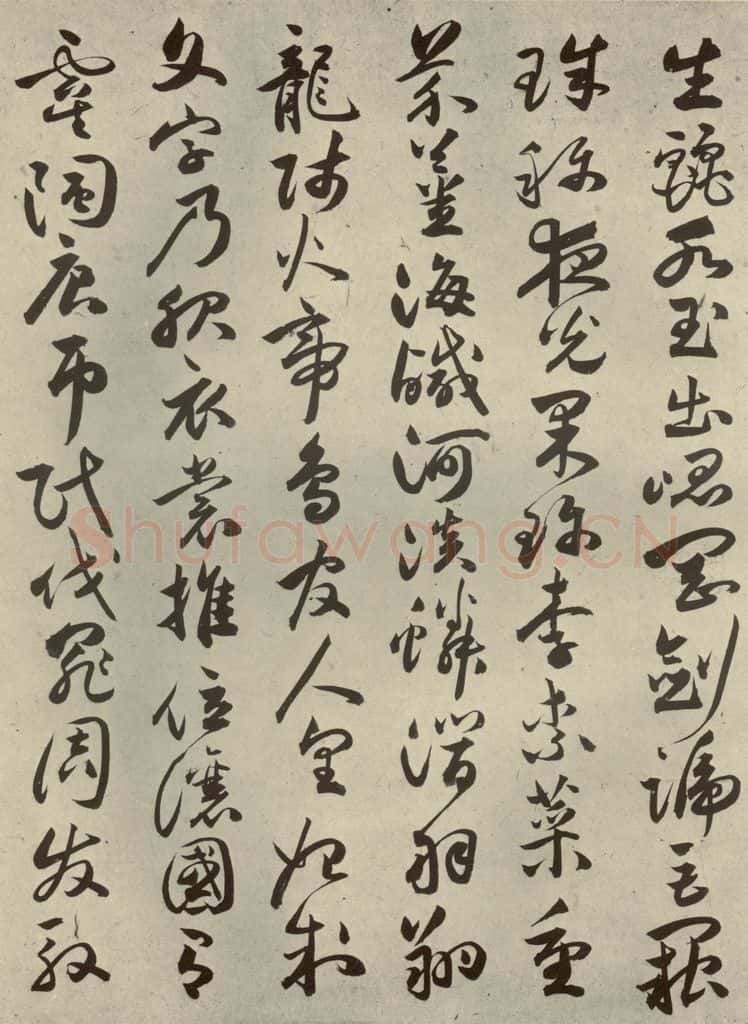 生麗水玉出崐岡劍號巨闕
珠称夜光果珍李柰菜重
芥薑海鹹河淡鱗潛羽翔
龍師火帝鳥官人皇始制
文字乃服衣裳推位讓國有
虞陶唐弔民伐罪周發殷
Shufawang.CN